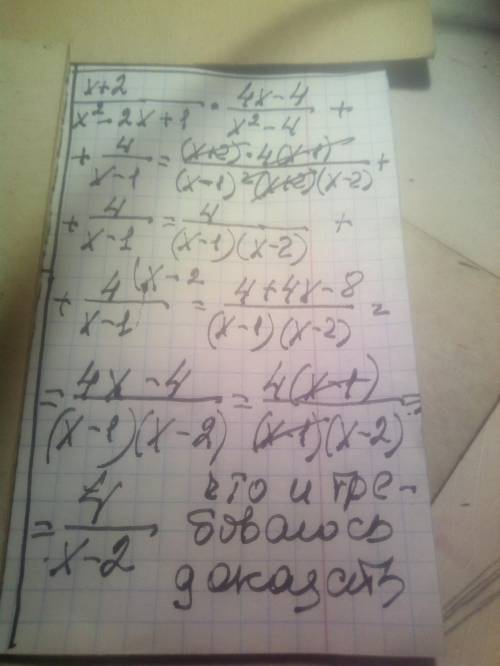 (x+2)/(x²-2x+1) · (4x-4)/(x²-4) +
+ 4/(x-1) = ((x+2)·4(x-1))/((x-1)²(x+2)(x-2)) +
+ 4/(x-1) = 4/((x-1)(x-2)) +
+ 4/(x-1) (x-2 = (4+4x-8)/((x-1)(x-2)) =
= (4x-4)/((x-1)(x-2)) = (4(x-1))/((x-1)(x-2)) =
= 4/(x-2) что и тре-
бовалось
доказать